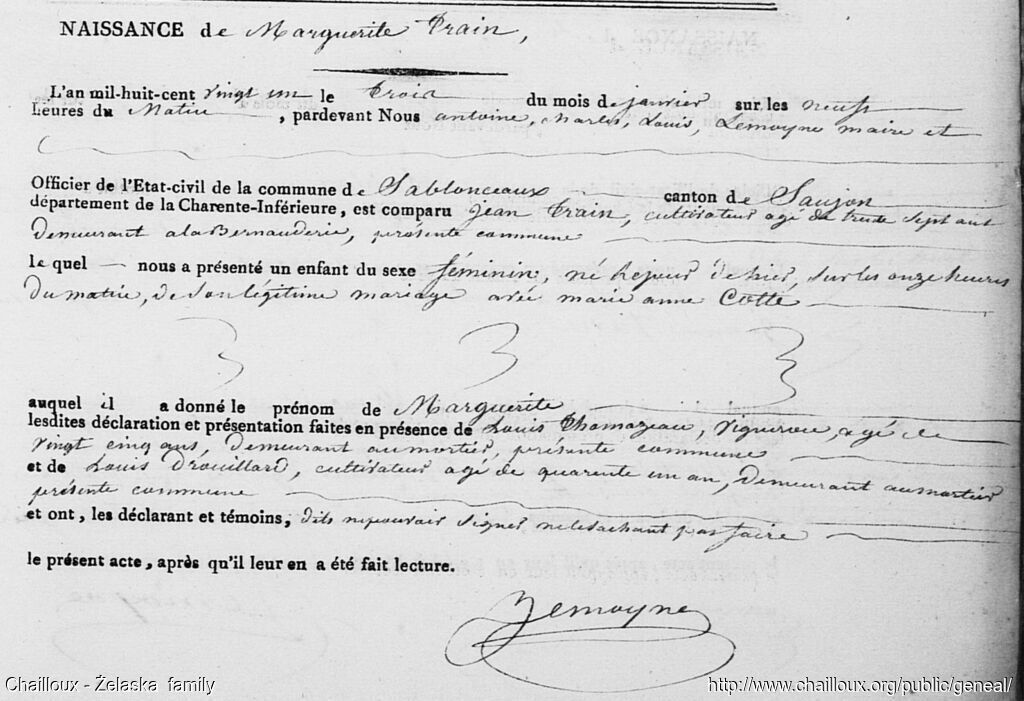 NAISSANCE de Marguerite Train,
L'an mil-huit-cent vingt un le trois du mois de janvier sur les neuf
Leures du Matin, pardevant Nous antoine, charles, Louis, Lemoyne maire et
Officier de l'Etat-civil de la commune de Sablonceaux canton de Saujon
département de la Charente-Inférieure, est comparu Jean Train, cultivateur agé de trente sept ans
demeurant a la Bernauderie, présente commune
le quel nous a présenté un enfant du sexe féminin, né le jour d'hier, sur les onze heures
du matin, de son légitime mariage avec marie anne Cotte
auquel il a donné le prénom de Marguerite
lesdites déclaration et présentation faites en présence de Louis Thomazeau, vigneron, agé de
vingt cinq ans, demeurant au mortier, présente commune
et de Louis Drouillard, cultivateur agé de quarente un an, demeurant au mortier
présente commune
et ont, les déclarant et témoins, dits ne pouvoir signer ne le sachant pas faire
le présent acte, après qu'il leur en a été fait lecture.
Lemoyne
Chailloux - Želaska family
http://www.chailloux.org/public/geneal/